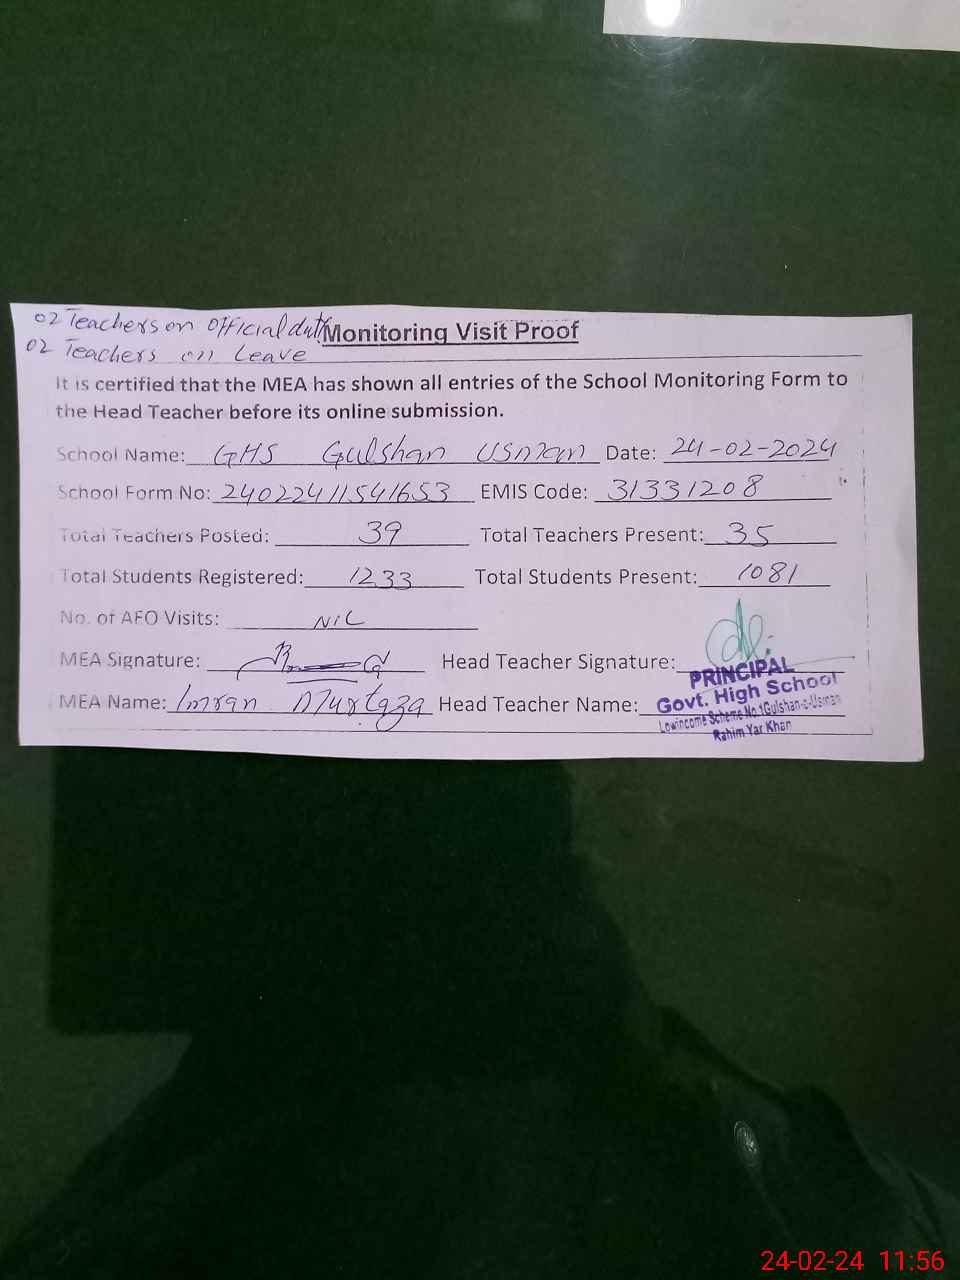 02 Teachers on Official duty
Monitoring Visit Proof
02 Teachers on Leave
It is certified that the MEA has shown all entries of the School Monitoring Form to
the Head Teacher before its online submission.
School Name: GHS Gulshan Usman Date: 24-02-2024
School Form No: 24022411541653 EMIS Code: 31331208
Total Teachers Posted: 39 Total Teachers Present: 35
Total Students Registered: 1233 Total Students Present: 1081
No. of AEO Visits: NiL
MEA Signature: Head Teacher Signature:
PRINCIPAL
MEA Name: Imran Murtaza Head Teacher Name:
Govt. High School
Lowincome Scheme No.1Gulshan-e-Usman
Rahim Yar Khan
24-02-24 11:56